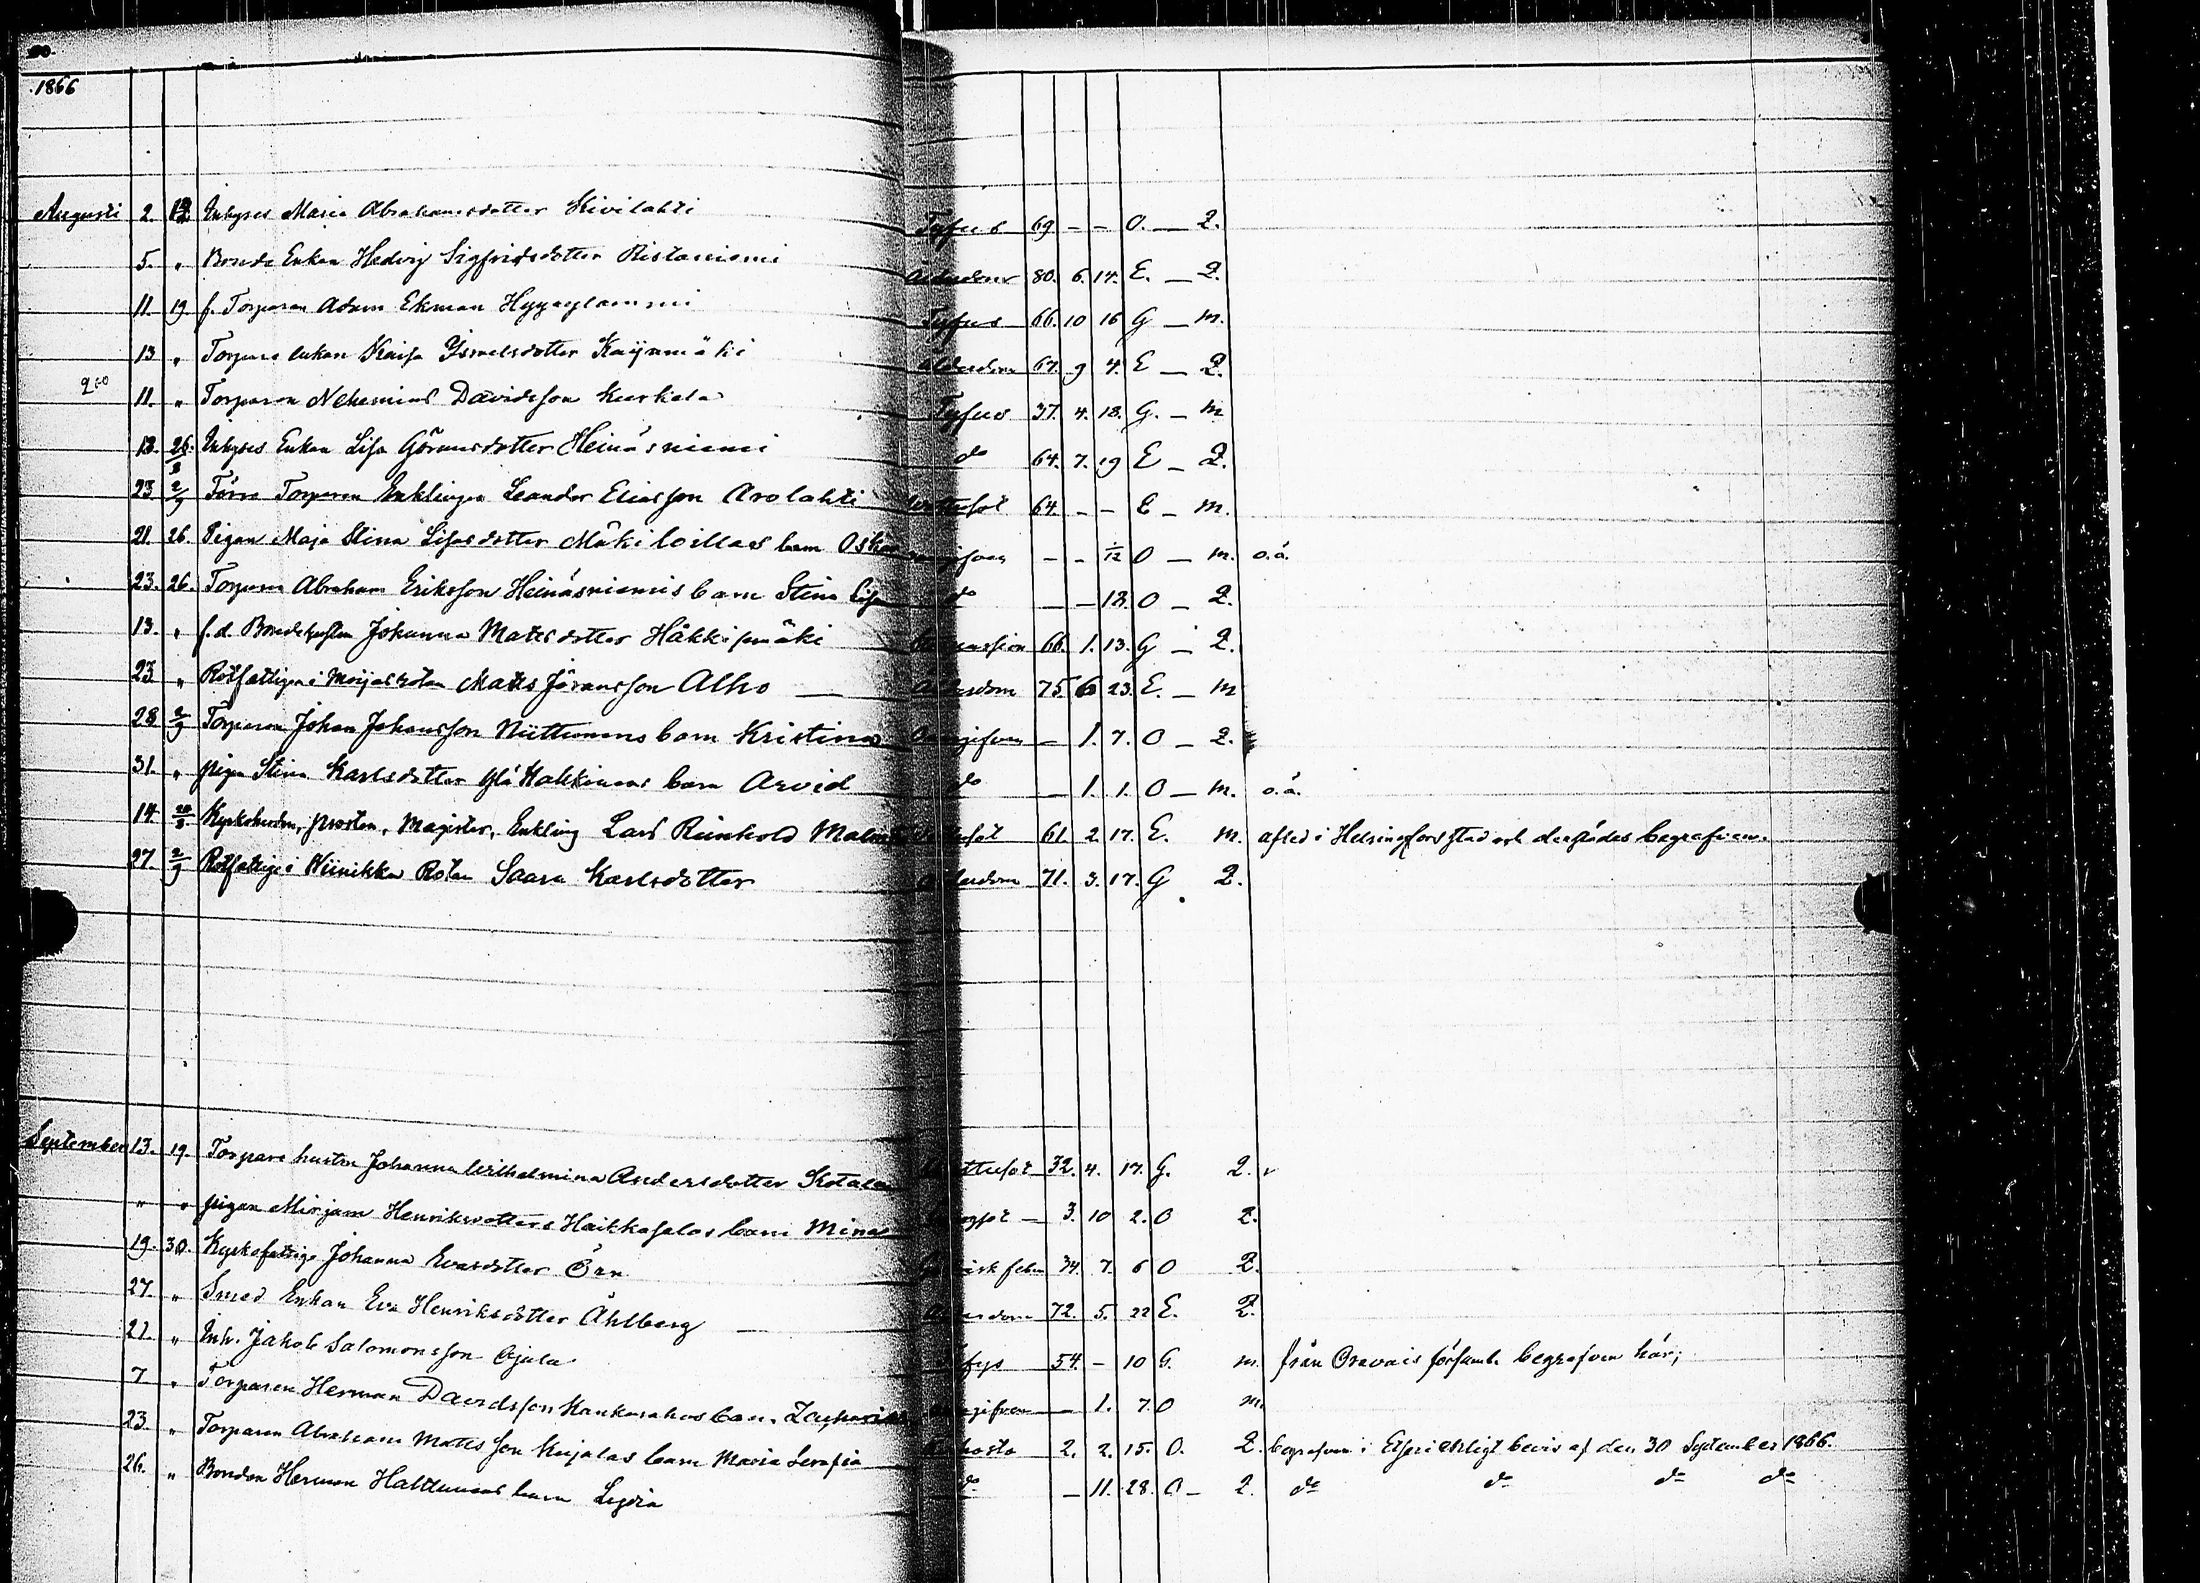 1866
Augusti 2 12 Inhyses Maria Abrahamsdotter Kivilahti Tyfus 69 - - O. - Q.
5. " Bonde Enkan Hedvig Sigfridsdotter Ristaniemi Ålderdom 80. 6. 14. E. - Q.
11. 19 f. Torparen Adam Ekman Hyypylammi Tyfus 66. 10 16 G - m.
13 " Torpare enkan Kaisa Ysraelsdotter Ålderdom 67. 9 4. E - Q.
11. " Torparen Nehemias Davidsson Kurkela Tyfus 37. 4. 18. G. - m
12. 26/8 Inhyses Enkan Lisa Göransdotter Heinäsniemi do 64. 7. 19 E - Q.
23 2/9 Förre Torparen Enklingen Leander Eliasson Arolahti 64. - - E - m.
21. 26. Pigan Maja Stina Lisasdotter barn Oskar - - 1/12 O - m. o.ä.
23. 26. Torparen Abraham Eriksson Heinäsniemis barn Stina Lisa do - - 18. O - Q.
13. " f.d. Bondehustru Johanna Matsdotter Häkkismäki 66. 1. 13. G - Q.
23 " Rotfattigen i Matts Jöransson Alho - Ålderdom 75 6 23. E. - m
28 2/9 Torparen Johan Johansson Niittunens barn Kristina Oangifven - 1. 7. O - Q.
31. " pigan Stina Karlsdotter barn Arvid do - 1. 1. O - m. o.ä.
14 20/8 Kyrkoherden, prosten, Magister, Enkling Lars Reinhold 61. 2 17. E. m. afled i Helsingfors stad och derstädes begrafven.
27. 2/9 Rotfattige i Niinikka Rotan Saara Karlsdotter Ålderdom 71. 3. 17. G Q.
September 13. 19. Torpare hustru Johanna Wilhelmina Andersdotter 32. 4. 17. G. Q.
" " pigan Mirjam Henriksdotters Haikkasalos barn Mina - 3. 10 2. O Q.
19. 30. Kyrkofattige Johanna Evasdotter Örn 34. 7. 6 O Q.
27. " Smed Enkan Eva Henriksdotter Åhlberg - Ålderdom 72. 5. 22 E. Q.
21. " Inh. Jakob Salomonsson Ojala 54 - 10 G. m. från Oravais församl. begrafven här;
7 " Torparen Herman Davidsson barn Zacharias Oangifven - 1. 7. O m.
23. " Torparen Abraham Mattsson Kujalas barn Maria Serafia 2. 2. 15. O. Q. begrafven i Etseri enligt bevis af den 30 September 1866.
26. " Bonden Herman Halttunens barn Lydia do - 11. 28. O - Q. do do do do